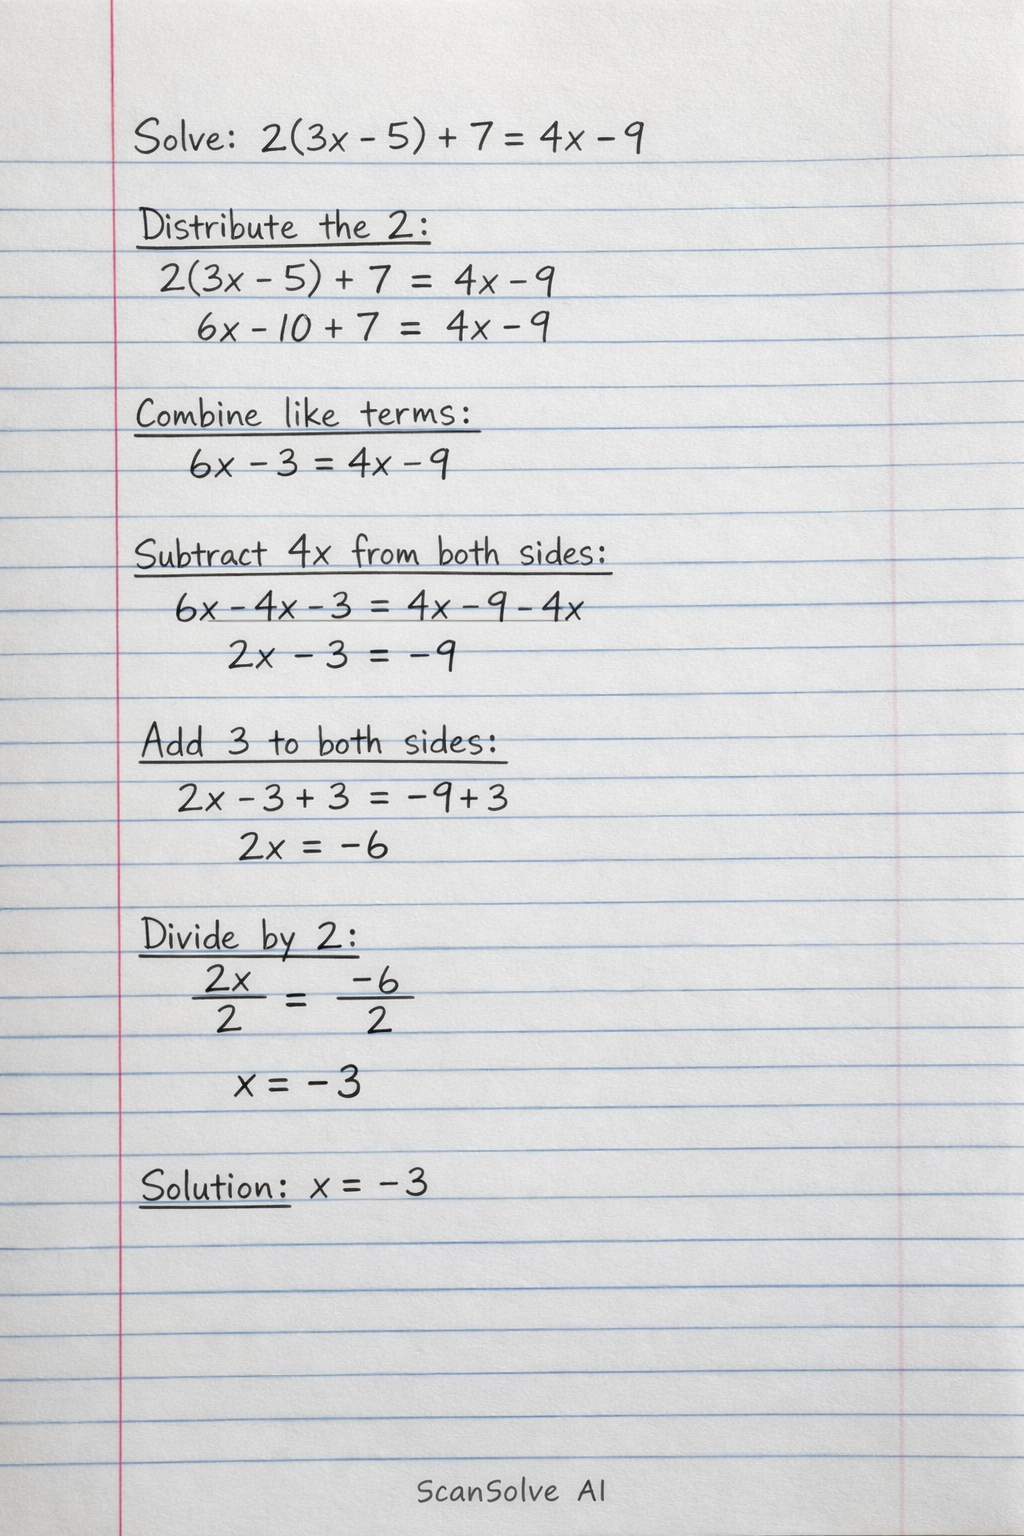 Solve: 2(3x - 5) + 7 = 4x - 9
Distribute the 2:
2(3x - 5) + 7 = 4x - 9
6x - 10 + 7 = 4x - 9
Combine like terms:
6x - 3 = 4x - 9
Subtract 4x from both sides:
6x - 4x - 3 = 4x - 9 - 4x
2x - 3 = -9
Add 3 to both sides:
2x - 3 + 3 = -9 + 3
2x = -6
Divide by 2:
2x/2 = -6/2
x = -3
Solution: x = -3
ScanSolve AI